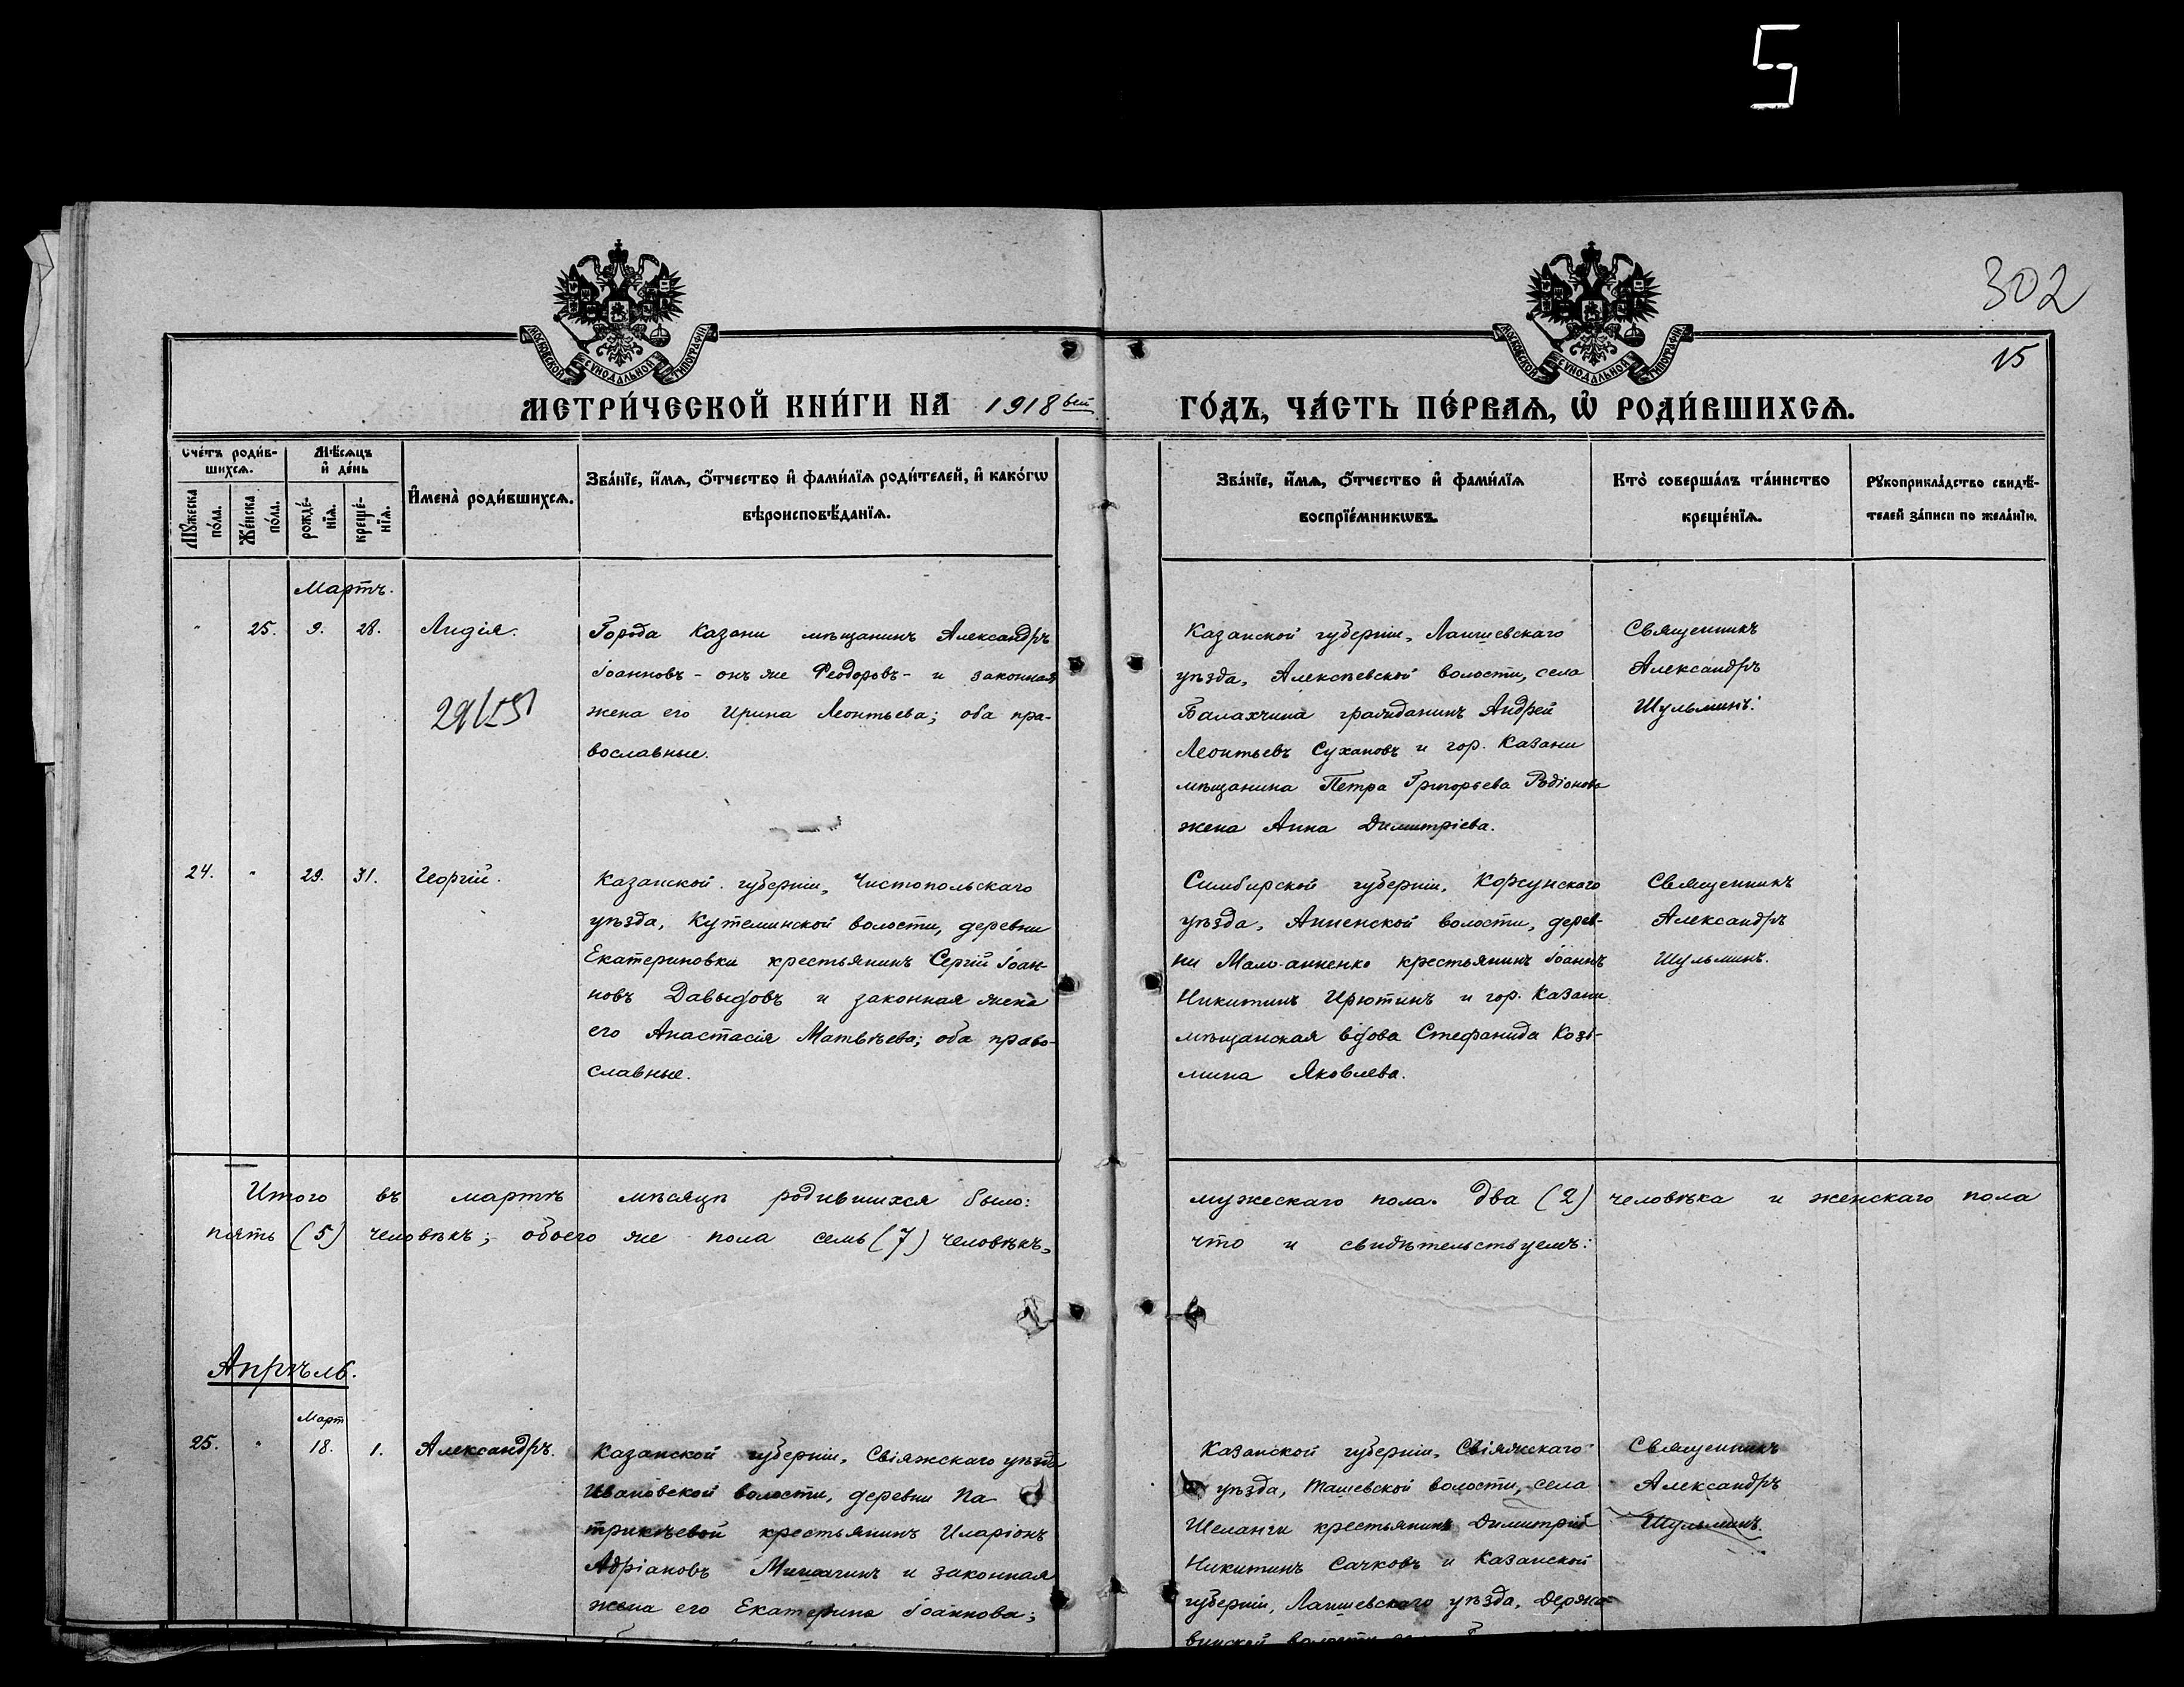 5
302
15
МОСКОВСКОЙ СѴНОДАЛЬНОЙ ТИПОГРАФІИ
МОСКОВСКОЙ СѴНОДАЛЬНОЙ ТИПОГРАФІИ
МЕТРИ́ЧЕСКОЙ КНИ́ГИ НА 1918 вый ГО́ДЪ, ЧА́СТЬ ПЕ́РВАѦ, Ѡ҆ РОДИ́ВШИХСѦ.
Сче́тъ роди́в-
шихсѧ.
Мѣ́сѧцъ
и҆ де́нь
Мꙋ́жеска
по́ла.
Же́нска
по́ла.
рожде́-
нїѧ.
креще́-
нїѧ.
И҆мена̀ роди́вшихсѧ.
Зва́нїе, и҆́мѧ, ѻ҆́тчество и҆ фами́лїѧ роди́телей, и҆ како́гѡ
вѣроисповѣ́данїѧ.
Зва́нїе, и҆́мѧ, ѻ҆́тчество и҆ фами́лїѧ
воспрїе́мникѡвъ.
Кто̀ соверша́лъ та́инство
креще́нїѧ.
Рꙋкоприкла́дство свидѣ́-
телей за́писи по жела́нїю.
Мартъ.
" 25. 9. 28. Лидія.
Города Казани мѣщанинъ Александръ
Іоанновъ - онъ же Ѳеодоровъ - и законная
жена его Ирина Леонтьева; оба пра-
вославные.
Казанской губерніи, Лаишевскаго
уѣзда, Алексѣевской волости, села
Балахчина гражданинъ Андрей
Леонтьевъ Сухановъ и гор. Казани
мѣщанина Петра Григорьева Родіонова
жена Анна Димитріева.
Священникъ
Александръ
Шульминъ.
24. " 29. 31. Георгій.
Казанской губерніи, Чистопольскаго
уѣзда, Кутеминской волости, деревни
Екатериновки крестьянинъ Сергій Іоан-
новъ Давыдовъ и законная жена
его Анастасія Матвѣева; оба право-
славные.
Симбирской губерніи, Корсунскаго
уѣзда, Анненской волости, дерев-
ни Мало-анненко крестьянинъ Іоаннъ
Никитинъ Ирютинъ и гор. Казани
мѣщанская вдова Стефанида Козь-
мина Яковлева.
Священникъ
Александръ
Шульминъ.
Итого въ мартѣ мѣсяцѣ родившихся было: мужескаго пола два (2) человѣка и женскаго пола
пять (5) человѣкъ; обоего же пола семь (7) человѣкъ, что и свидѣтельствуемъ:
Апрѣль.
Март
25. " 18. 1. Александръ.
Казанской губерніи, Свіяжскаго уѣзда
Ивановской волости, деревни Па-
трикѣевой крестьянинъ Иларіонъ
Адріановъ и законная
жена его Екатерина Іоаннова;
Казанской губерніи, Свіяжскаго
уѣзда, Ташевской волости, села
Шеланги крестьянинъ Димитрій
Никитинъ Сачковъ и Казанской
губерніи, Лаишевскаго уѣзда, Держа-
винской волости
Священникъ
Александръ
Шульминъ.